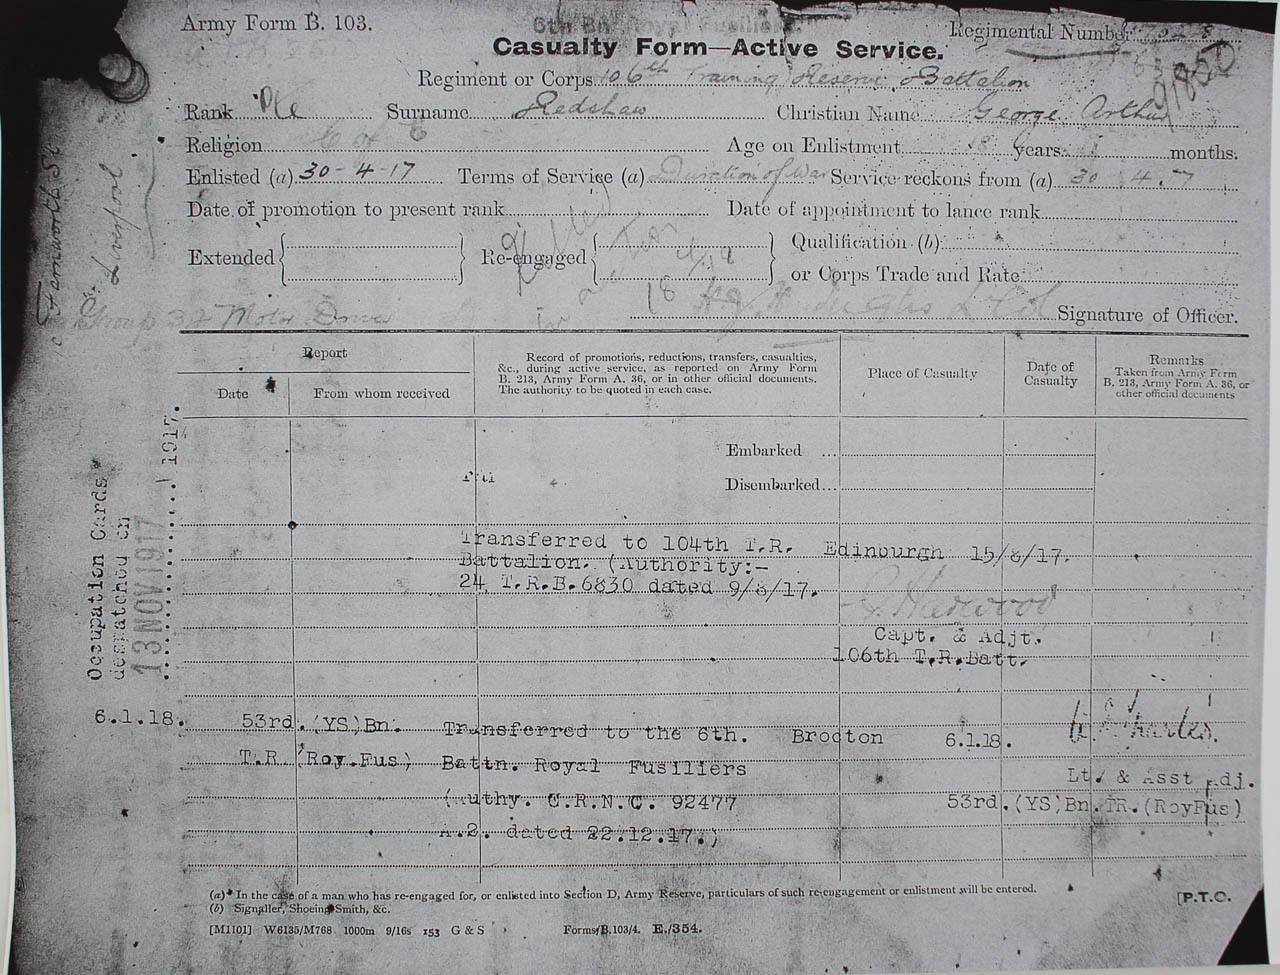 Army Form B. 103.
6th Bn Royal Fusiliers.
Regimental Number
91850
Casualty Form—Active Service.
Regiment or Corps 106th Training Reserve Battalion
Rank Pte Surname Redshaw Christian Name George Arthur
Religion C of E Age on Enlistment 18 years 1 months.
Enlisted (a) 30-4-17 Terms of Service (a) Duration of War Service reckons from (a) 30 4.17
Date of promotion to present rank Date of appointment to lance rank
Extended Re-engaged Qualification (b)
or Corps Trade and Rate
Signature of Officer.
Group 32 Motor Driver
St
Liverpool
Report
Date
From whom received
Record of promotions, reductions, transfers, casualties,
&c., during active service, as reported on Army Form
B. 213, Army Form A. 36, or in other official documents.
The authority to be quoted in each case.
Place of Casualty
Date of
Casualty
Remarks
Taken from Army Form
B. 213, Army Form A. 36, or
other official documents
Embarked ...
Disembarked...
Occupation Cards
despatched on
13 NOV 1917 1917.
Transferred to 104th T.R. Edinburgh 15/8/17.
Battalion. (Authority:-
24 T.R.B.6830 dated 9/8/17.
Harwood
Capt. & Adjt.
106th T.R.Batt.
6.1.18. 53rd.(YS)Bn. Transferred to the 6th. Brocton 6.1.18.
T.R. (Roy.Fus) Battn. Royal Fusiliers
Lt. & Asst Adj.
(Authy. C.R.N.C. 92477 53rd.(YS)Bn.TR.(RoyFus)
A.2. dated 22.12.17.)
(a)* In the case of a man who has re-engaged for, or enlisted into Section D, Army Reserve, particulars of such re-engagement or enlistment will be entered.
(b) Signaller, Shoeing Smith, &c.
[P.T.O.
[M1101] W6135/M768 1000m 9/16s 153 G & S Forms/B.103/4. E./354.